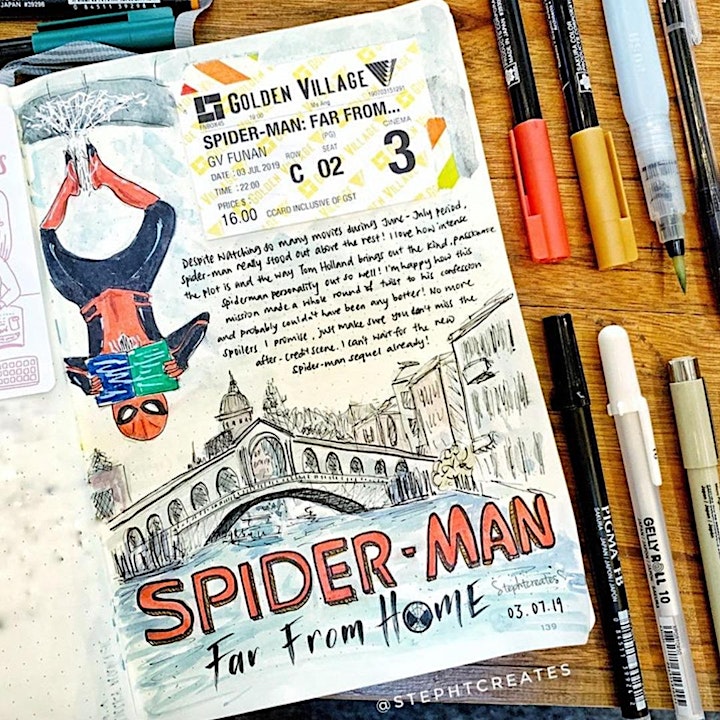 JAPAN #39298
0 84511 39298 4
GOLDEN VILLAGE
SPIDER-MAN: FAR FROM...
(PG)
GV FUNAN
ROW
SEAT
CINEMA
DATE : 03 JUL 2019
C 02
3
TIME : 22:00
PRICE $ :
16.00 CCARD INCLUSIVE OF GST
Despite watching so many movies during June-July period,
spider-man really stood out above the rest! I love how intense
the plot is and the way Tom Holland brings out the kind, passionate
spiderman personality out so well! I'm happy how this
mission made a whole round of twist to his confession
and probably couldn't have been any better! No more
spoilers I promise, just make sure you don't miss the
after-credit scene. I can't wait for the new
Spider-man sequel already!
SPIDER-MAN
Far From HOME
Stephtcreates
03.07.19
139
@STEPHTCREATES
PIGMA FB
SAKURA JAPAN
GELLY ROLL 10